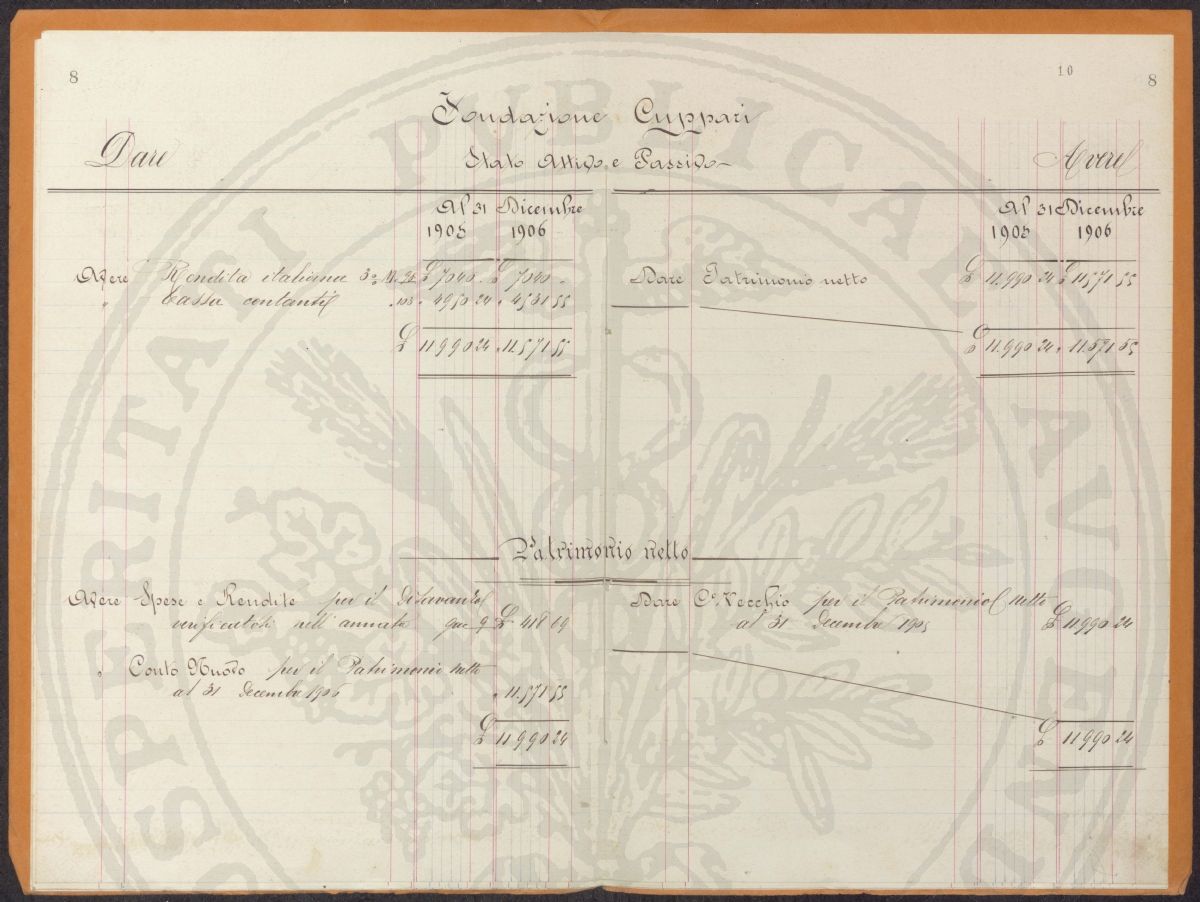 8
10
8
Fondazione Cuppari
Dare
Stato Attivo e Passivo
Avere
Al 31 Dicembre
1905 1906
Al 31 Dicembre
1905 1906
Avere Rendita italiana 3% £ 7040 . £ 7040 .
" Cassa contanti " 103 " 4950 24 " 4531 55
£ 11990 24 " 11.571 55
Dare Patrimonio netto £ 11.990 24 £ 11571 55
£ 11.990 24 " 11.571 55
Patrimonio netto
Avere Spese e Rendite per il disavanzo
verificatosi nell'annata £ 418 69
" Conto Nuovo per il Patrimonio netto
al 31 decembre 1906 " 11.571 55
£ 11990 24
Dare Cº Vecchio per il Patrimonio netto
al 31 decembre 1905 £ 11990 24
£ 11990 24
PROSPERITATI PUBLICAE AUGENDAE